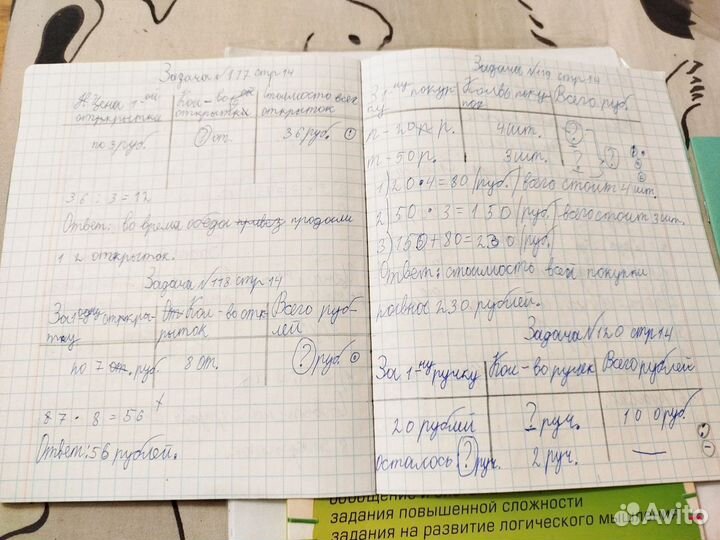 Задача №117 стр 14
Цена 1-ой Кол-во Стоимость всех
открытки открыток открыток
по 3 руб. ? от. 36 руб.
36 : 3 = 12
Ответ: во время обеда продали
12 открыток.
Задача №118 стр 14
За 1 одну открытку Кол-во открыток Всего рублей
по 7 руб. 8 от. ? руб.
7 · 8 = 56
Ответ: 56 рублей.
Задача №119 стр 14
За 1-ну покупку Кол-во покупок Всего руб.
п - 20 р. 4 шт. ?
т - 50 р. 3 шт. ? ?
1) 20 · 4 = 80 (руб.) всего стоит 4 шт.
2) 50 · 3 = 150 (руб.) всего стоит 3 шт.
3) 150 + 80 = 230 (руб.)
Ответ: стоимость всей покупки
равное 230 рублей.
Задача №120 стр 14
За 1-ну ручку Кол-во ручек Всего рублей
20 рублей ? руч. 100 руб.
Осталось ? руч. 2 руч. —
задания повышенной сложности
задания на развитие логического мышления
Avito